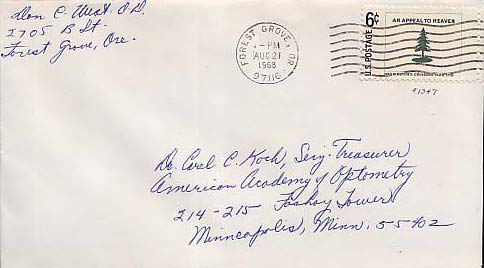 Don C. West O.D.
2705 B St.
Forest Grove, Ore.
FOREST GROVE, OR
PM
AUG 21
1968
97116
6¢
U.S. POSTAGE
AN APPEAL TO HEAVEN
WASHINGTON'S CRUISERS FLAG 1775
#1347
Dr. Carl C. Koch, Secy-Treasurer
American Academy of Optometry
214-215 Foshay Tower
Minneapolis, Minn. 55402